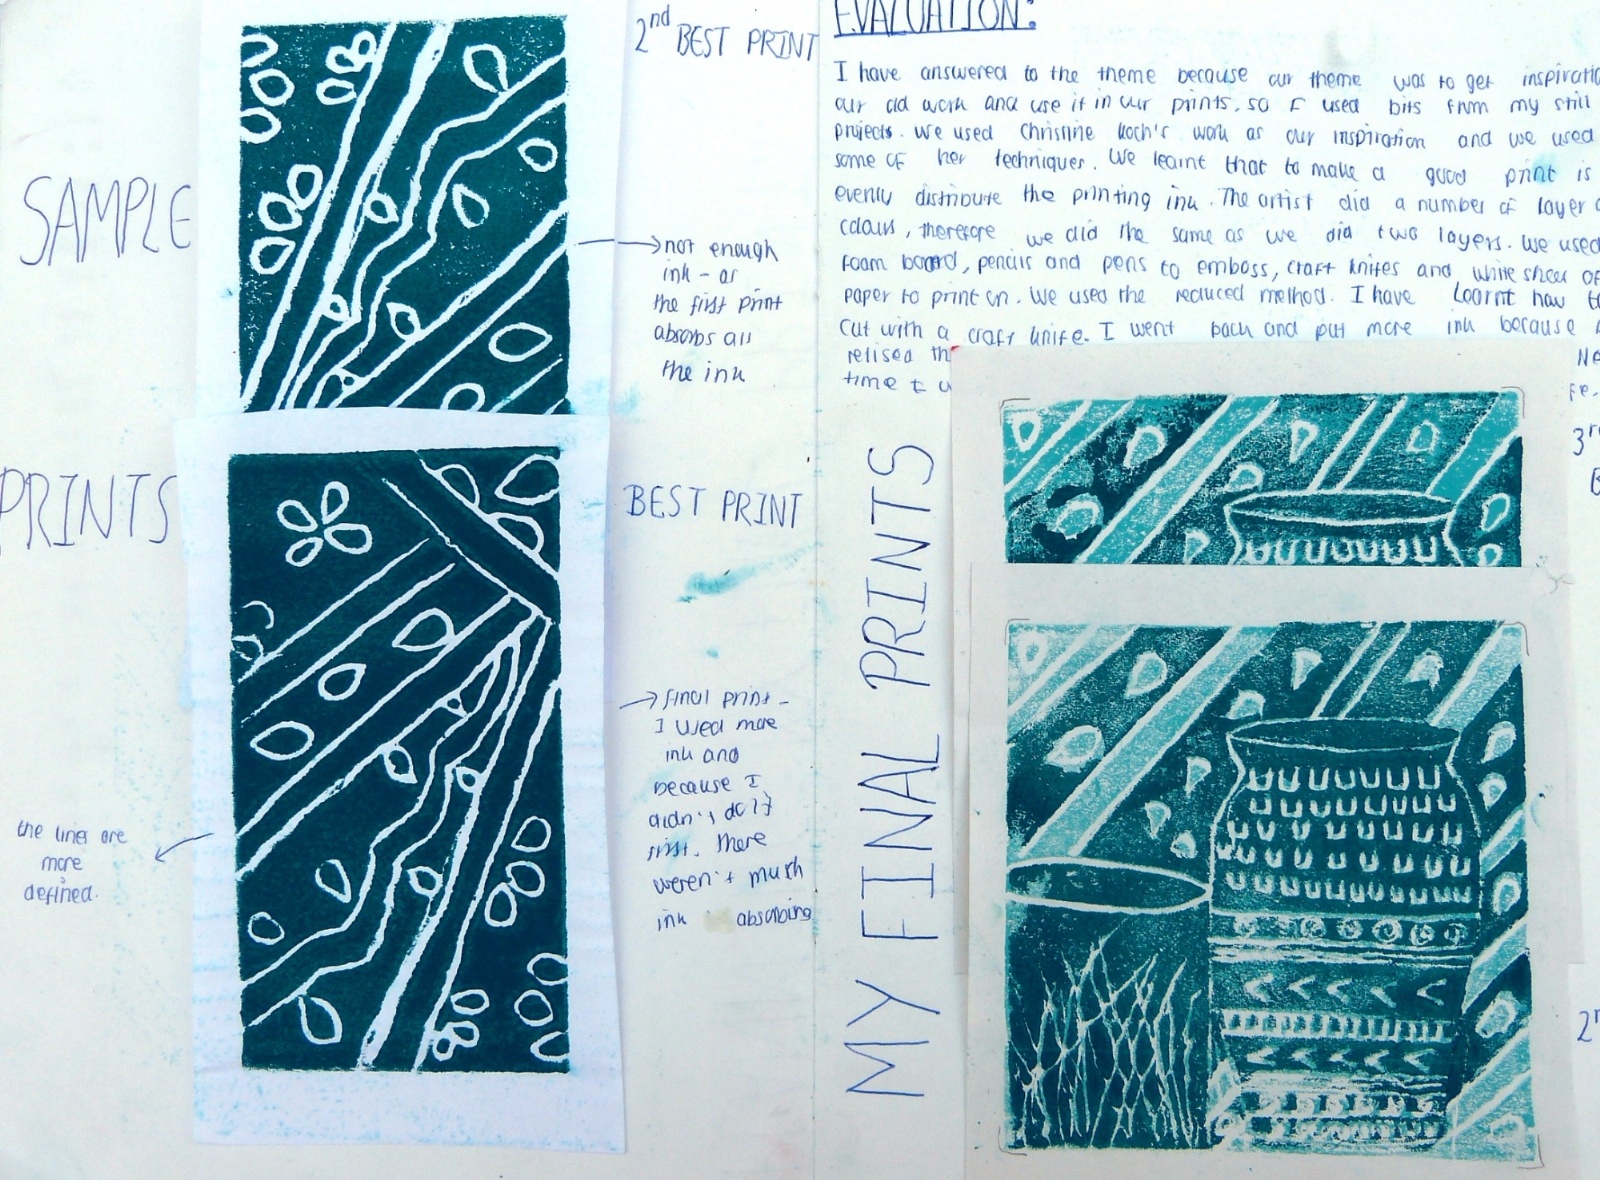 SAMPLE
PRINTS
2nd BEST PRINT
not enough
ink - as
the first print
absorbs all
the ink
BEST PRINT
final print -
I used more
ink and
because I
didn't do it
first. there
weren't much
ink absorbing
the lines are
more
defined.
EVALUATION:
I have answered to the theme because our theme was to get inspiratio
our old work and use it in our prints, so I used bits from my still
projects. We used Christine Koch's work as our inspiration and we used
some of her techniques. We learnt that to make a good print is
evenly distribute the printing ink. The artist did a number of layer
colours, therefore we did the same as we did two layers. We used
foam board, pencils and pens to emboss, craft knifes and white sheet of
paper to print on. We used the reduced method. I have learnt how to
cut with a craft knife. I went back and put more ink because
relised th
time t
MY FINAL PRINTS
3r
B
2n